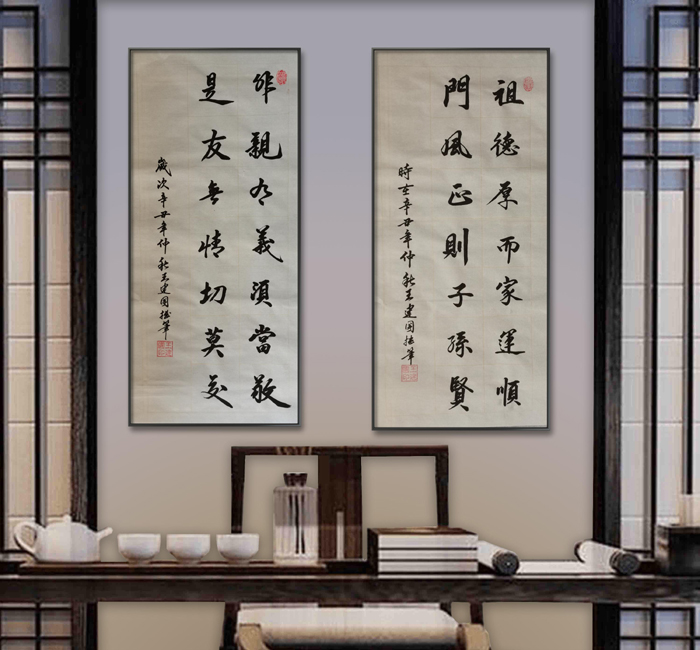 祖德厚而家運順
門風正則子孫賢
時在辛丑年仲秋王建國拙筆
非親有義須當敬
是友無情切莫交
歲次辛丑年仲秋王建國拙筆